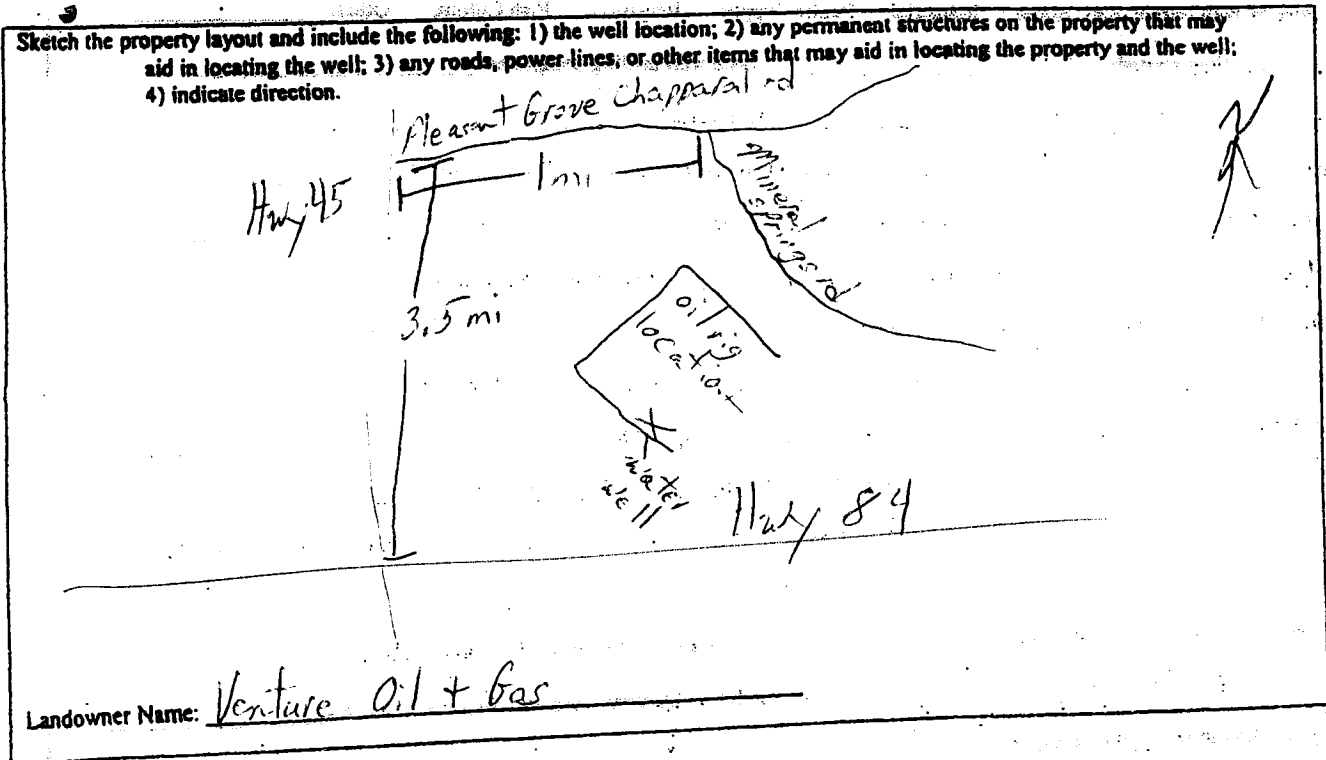 Sketch the property layout and include the following: 1) the well location; 2) any permanent structures on the property that may
aid in locating the well; 3) any roads, power lines, or other items that may aid in locating the property and the well;
4) indicate direction.
Pleasant Grove Chapparal rd
N
Hwy 45
1 mi
Mineral
springs rd
3.5 mi
oil rig
location
X
water
well
Hwy 84
Landowner Name: Venture Oil + Gas